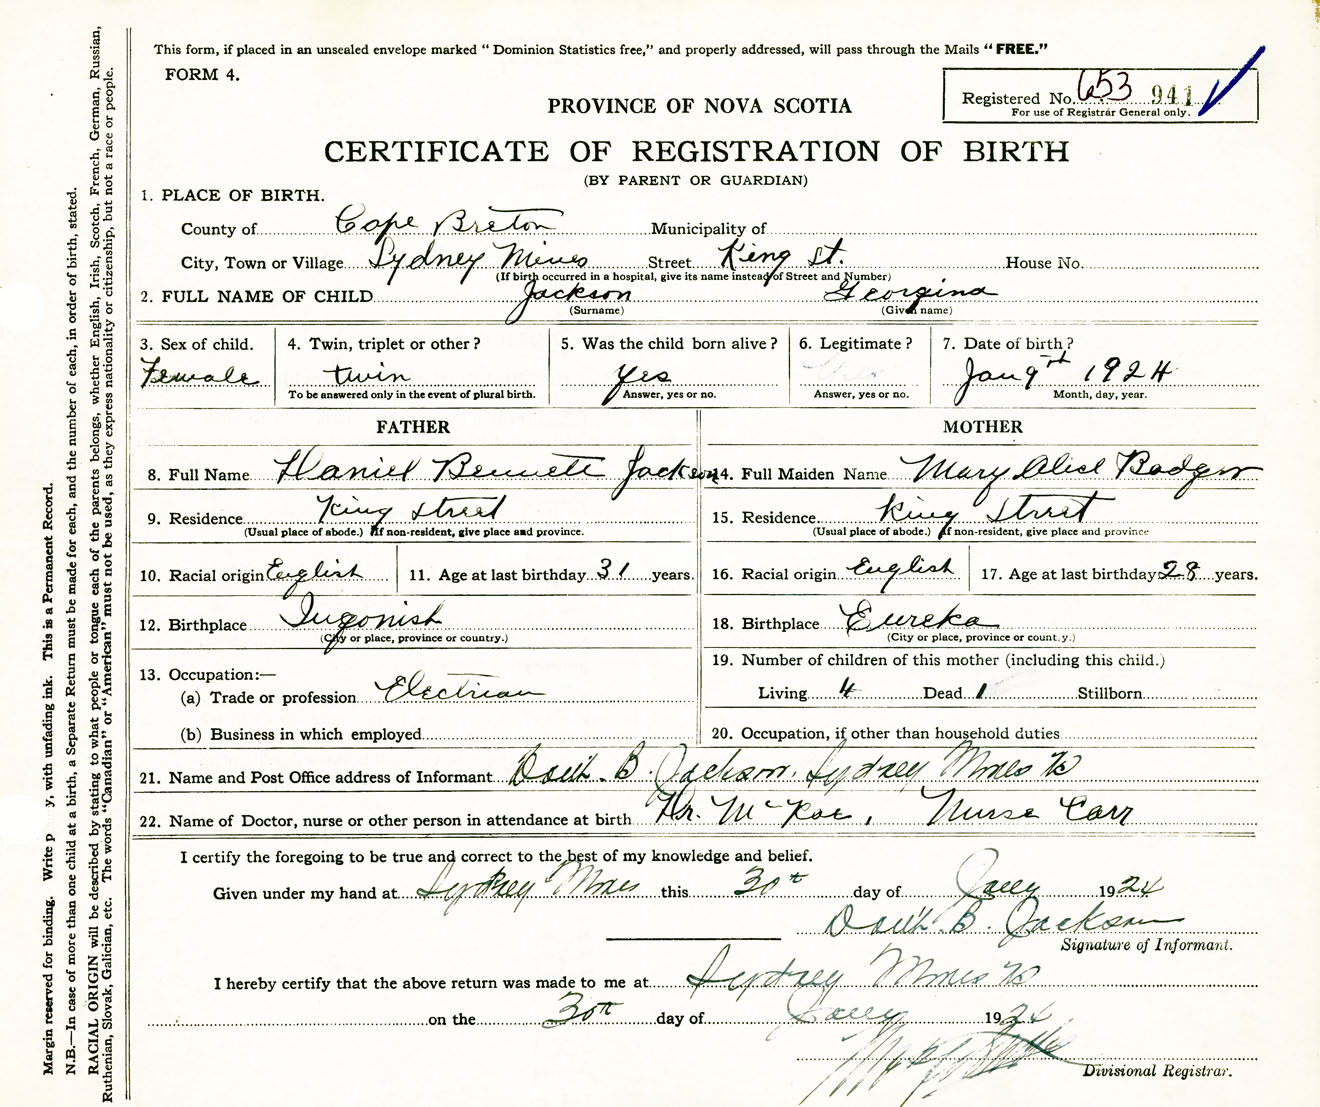 This form, if placed in an unsealed envelope marked " Dominion Statistics free," and properly addressed, will pass through the Mails " FREE."
FORM 4.
Registered No. 653 941
For use of Registrar General only.
PROVINCE OF NOVA SCOTIA
CERTIFICATE OF REGISTRATION OF BIRTH
(BY PARENT OR GUARDIAN)
1. PLACE OF BIRTH.
County of Cape Breton Municipality of
City, Town or Village Sydney Mines Street King St. House No.
(If birth occurred in a hospital, give its name instead of Street and Number)
2. FULL NAME OF CHILD Jackson Georgina
(Surname) (Given name)
3. Sex of child. 4. Twin, triplet or other? 5. Was the child born alive? 6. Legitimate? 7. Date of birth?
Female twin yes Jan 9th 1924
To be answered only in the event of plural birth. Answer, yes or no. Answer, yes or no. Month, day, year.
FATHER MOTHER
8. Full Name Daniel Bennett Jackson 14. Full Maiden Name Mary Alice Badger
9. Residence King Street 15. Residence King Street
(Usual place of abode.) If non-resident, give place and province. (Usual place of abode.) If non-resident, give place and province
10. Racial origin English 11. Age at last birthday 31 years. 16. Racial origin English 17. Age at last birthday 28 years.
12. Birthplace Ingonish 18. Birthplace Eureka
(City or place, province or country.) (City or place, province or count.y.)
13. Occupation:— 19. Number of children of this mother (including this child.)
(a) Trade or profession Electrician Living 4 Dead 1 Stillborn
(b) Business in which employed 20. Occupation, if other than household duties
21. Name and Post Office address of Informant Dan'l. B. Jackson. Sydney Mines
22. Name of Doctor, nurse or other person in attendance at birth Dr. McRae, Nurse Carr
I certify the foregoing to be true and correct to the best of my knowledge and belief.
Given under my hand at Sydney Mines this 30th day of Jany 1924
Dan'l. B. Jackson
Signature of Informant.
I hereby certify that the above return was made to me at Sydney Mines
on the 30th day of Jany 1924
Divisional Registrar.
Margin reserved for binding. Write p y, with unfading ink. This is a Permanent Record.
N.B.—In case of more than one child at a birth, a Separate Return must be made for each, and the number of each, in order of birth, stated.
RACIAL ORIGIN will be described by stating to what people or tongue each of the parents belongs, whether English, Irish, Scotch, French, German, Russian,
Ruthenian, Slovak, Galician, etc. The words "Canadian" or "American" must not be used, as they express nationality or citizenship, but not a race or people.